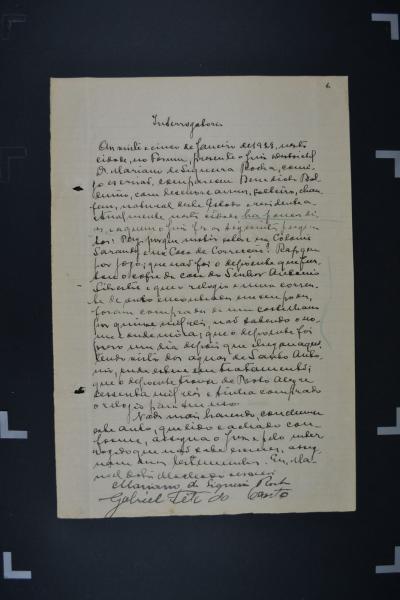 6
Interrogatorio
Aos vinte e cinco de Janeiro de 1928, nesta
cidade, no Forum, presente o Juiz districtal
Dr. Mariano de Siqueira Rocha, comi-
go escrivão, compareceu Benedicto
com annos, solteiro, chau-
ffeur, natural deste Estado e residente
atualmente nesta cidade ha poucos di-
as, a quem o juiz fez as seguintes pergun-
tas: Porque motivo esteve na Colonia
e na Casa de Correcção? Resp. que
por jogo; que não foi o depoente quem
o cofre da casa do Senhor Antonio
e que o relogio e uma corren-
te de ouro encontrados em seu poder,
foram comprados de um castelhano
por quinze mil réis, não sabendo o no-
me e onde mora; que o depoente foi
preso um dia depois que chegou aqui,
tendo vindo das aguas de Santo Anto-
nio, onde esteve em tratamento;
que o depoente trouxe de Porto Alegre
sessenta mil réis e tinha comprado
o relogio para seu uso.
Nada mais havendo, concluiu-se
este auto, que lido e achado con-
forme, assigna o Juiz e pelo inter-
rogado que não sabe escrever, assi-
gnam duas testemunhas. Eu, Ma-
noel Machado escrivão
Mariano de Siqueira Rocha
Gabriel do Canto